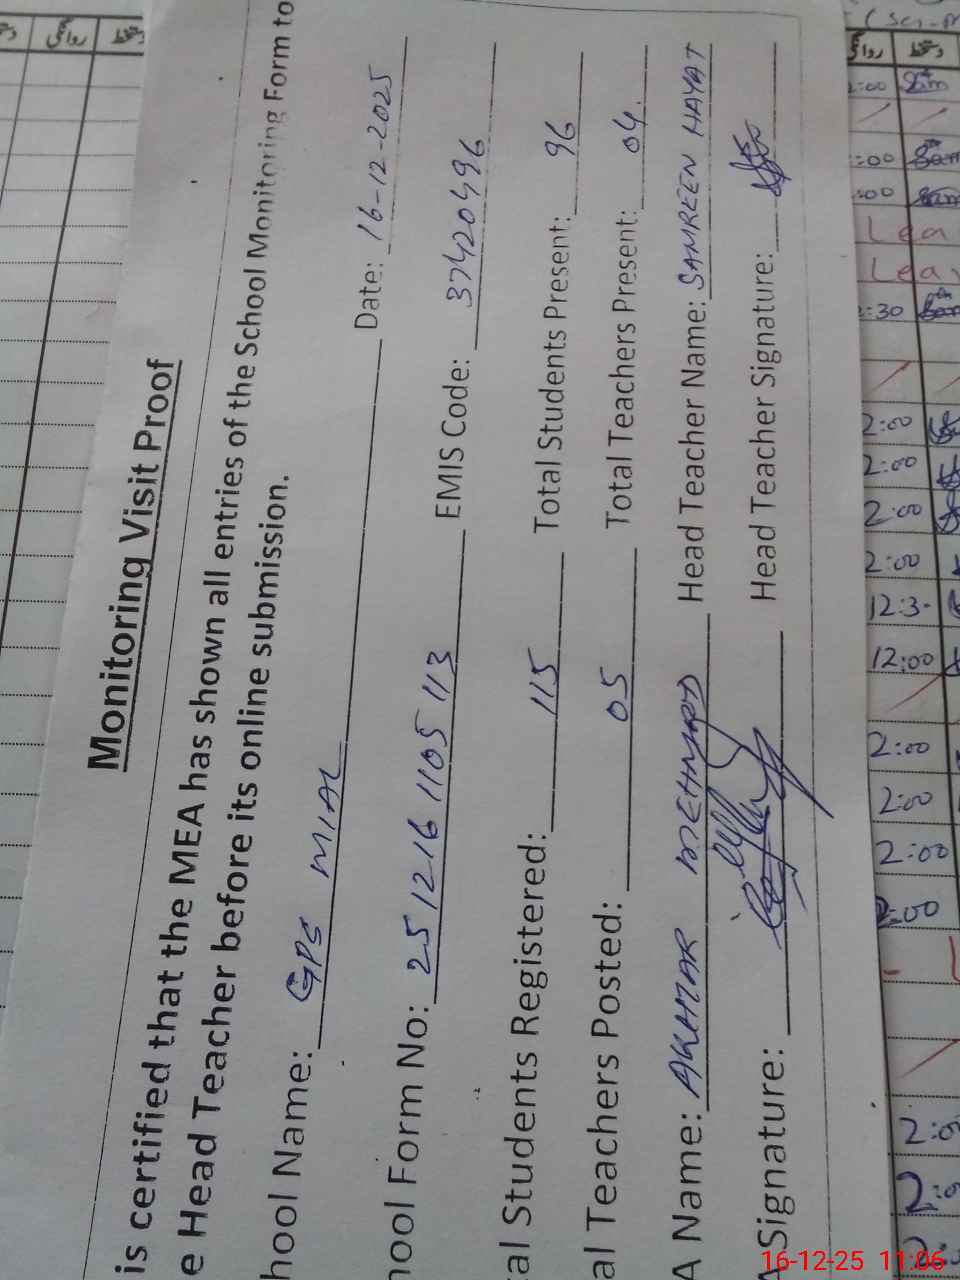 Monitoring Visit Proof
is certified that the MEA has shown all entries of the School Monitoring Form to
e Head Teacher before its online submission.
hool Name: GPS MIAL Date: 16-12-2025
hool Form No: 25 1216 1105 113 EMIS Code: 37420496
al Students Registered: 115 Total Students Present: 96
al Teachers Posted: 05 Total Teachers Present: 04
A Name: AKHTAR MEHMOOD Head Teacher Name: SAMREEN HAYAT
A Signature: Head Teacher Signature:
روانگی
دستخط
روانگی
دستخط
2:00
:00
:00
Lea
Lea
:30
2:00
2:00
2:00
2:00
12:3-
12:00
2:00
2:00
2:00
2:00
2:0
2:0
2:
16-12-25 11:06